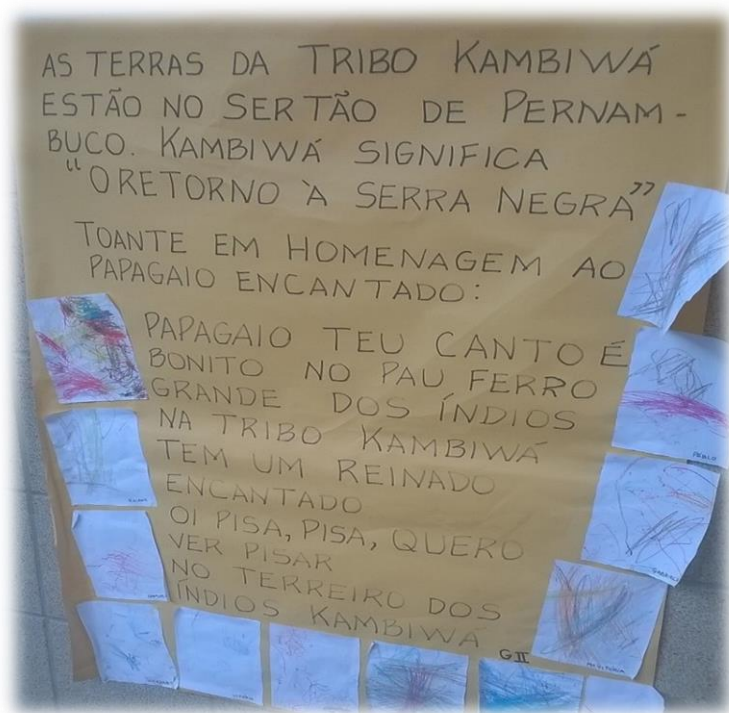 AS TERRAS DA TRIBO KAMBIWÁ
ESTÃO NO SERTÃO DE PERNAM-
BUCO. KAMBIWÁ SIGNIFICA
"O RETORNO À SERRA NEGRA"
TOANTE EM HOMENAGEM AO
PAPAGAIO ENCANTADO:
PAPAGAIO TEU CANTO É
BONITO NO PAU FERRO
GRANDE DOS ÍNDIOS
NA TRIBO KAMBIWÁ
TEM UM REINADO
ENCANTADO
OI PISA, PISA, QUERO
VER PISAR
NO TERREIRO DOS
ÍNDIOS KAMBIWÁ
GII